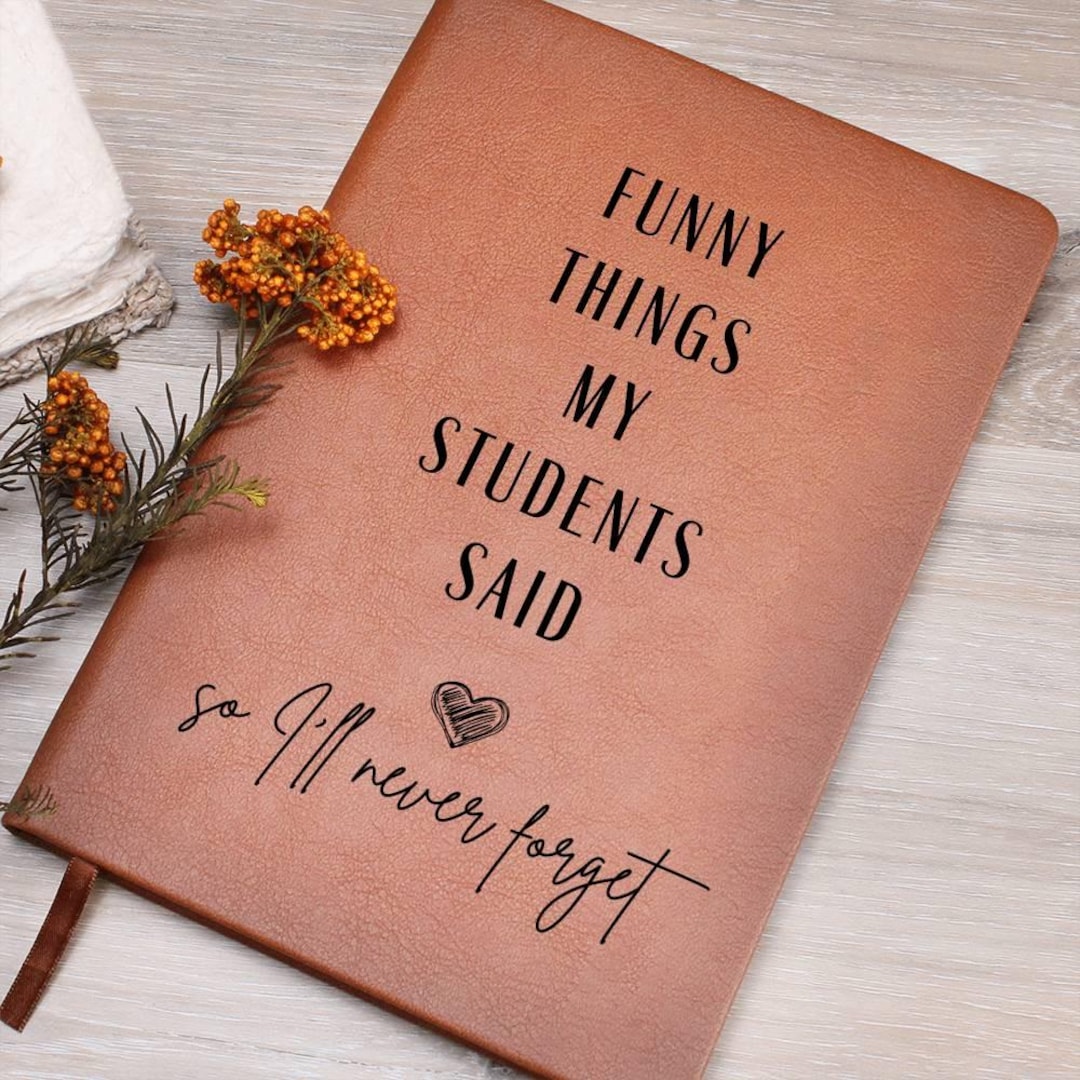 FUNNY
THINGS
MY
STUDENTS
SAID
so I'll never forget